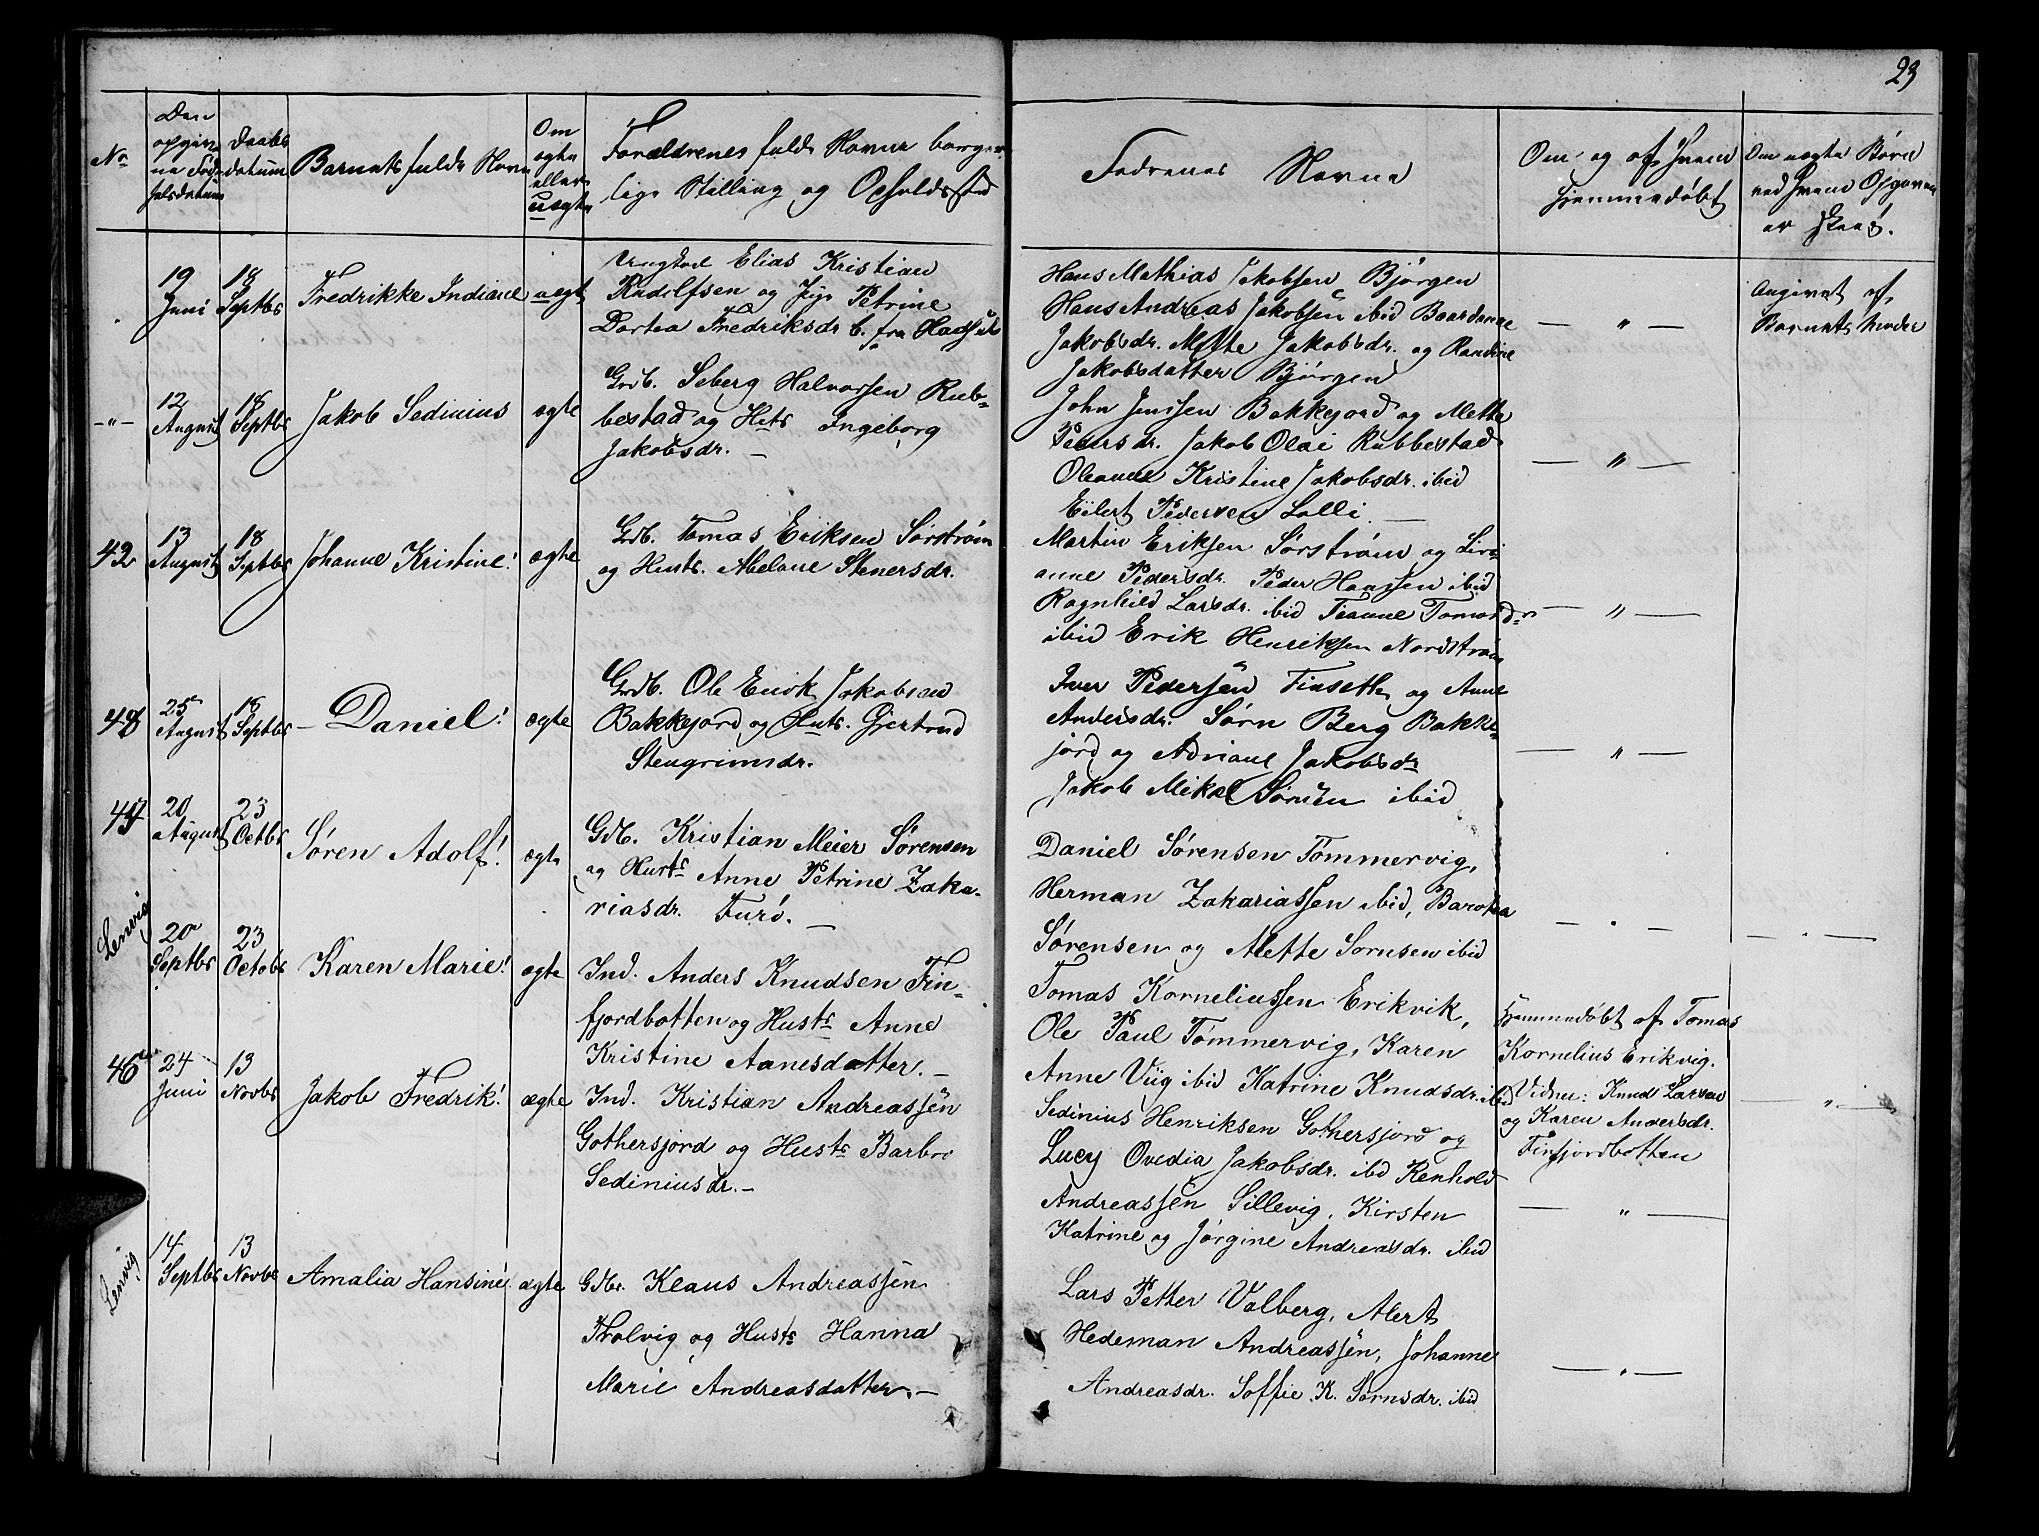 23
No
Den opgivne Fødselsdatum
Daabsdatum
Barnets fulde Navn
Om ægte eller uægte
Forældrenes fulde Navne borgerlige Stilling og Opholdssted
Faddernes Navne
Om og af hvem hjemmedøbt
Om uægte Børn ved hvem Opgaven er skeed.
19 Juni
18 Septbr
Fredrikke Indiane
uægt
Ungkarl Elias Kristian
Rudolfsen og Pige Petrine
Dortea Fredriksdr b. fra Hadsel
Hans Mathias Jakobsen Bjørgen
Hans Andreas Jakobsen ibid Baardanne
Jakobsdr. Mette Jakobsdr. og Randine
Jakobsdatter Bjørgen
— " —
Angivet af
Barnets Moder
— " —
12 August
18 Septbr
Jakob Sedinius
ægte
Grdb. Seberg Halvorsen Rub-
bestad og Hust. Ingeborg
Jakobsdr. —
John Jensen Bakkejord og Mette
Pedersdr. Jakob Olai Rubbestad
Oleanne Kristine Jakobsdr. ibid
Eilert Pedersen Lolli. —
— " —
42
13 August
18 Septbr
Johanne Kristine!
ægte
Grdb. Tomas Eriksen Sørstrøm
og Hustr. Abelone Stenersdr.
Martin Eriksen Sørstrøm og Livi-
anne Pedersdr. Peder Hansen ibid
Ragnhild Larsdr. ibid Tomasdr
ibid Erik Henriksen Nordstrøm
— " —
48
25 August
18 Septbr
— Daniel!
ægte
Grdb. Ole Enok Jakobsen
Bakkejord og Hustr. Gjertrud
Stengrimsdr.
Iver Pedersen Finseth og Anne
Andersdr. Sørn Berg Bakke-
jord og Adriane Jakobsdr
Jakob Mikal Sørnsen ibid
— " —
20 August
23 Octbr
Søren Adolf!
ægte
Gdb. Kristian Meier Sørensen
og Hustr Anne Petrine Zaka-
riasdr. Furø. —
Daniel Sørensen Tømmervig,
Herman Zakariassen ibid, Barolra
Sørensen og Mette Sørnsen ibid
Lenvig
20 Septbr
23 Octobr
Karen Marie!
ægte
Ind. Anders Knudsen Fin-
fjordbotten og Hustr Anne
Kristine Aanesdatter. —
Tomas Korneliussen Erikvik,
Ole Paul Tømmervig, Karen
Anne Viig ibid Katrine Knudsdr. ibid
Hjemmedøbt af Tomas
Kornelius Erikvig.
Vidner: Knud Larsen
og Karen Andersdr.
Finfjordbotten
— " —
46
24 Juni
13 Novbr
Jakob Fredrik!
ægte
Ind. Kristian Andreassen
Gothersjord og Hustr Barbro
Sediniusdr. —
Sedinius Henriksen Gothersjord og
Lucy Ovedia Jakobsdr. ibid Renhold
Andreassen Sillevig, Kirsten
Katrine og Jørgine Andreasdr. ibid
— " —
Lenvig
14 Septbr
13 Novbr
Amalia Hansine!
ægte
Gdbr. Klaus Andreassen
Tholvig og Hustr Hanna
Marie Andreasdatter. —
Lars Petter Valberg, Alert
Hedeman Andreassen, Johanne
Andreasdr. Soffie K. Sørnsdr. ibid
— " —